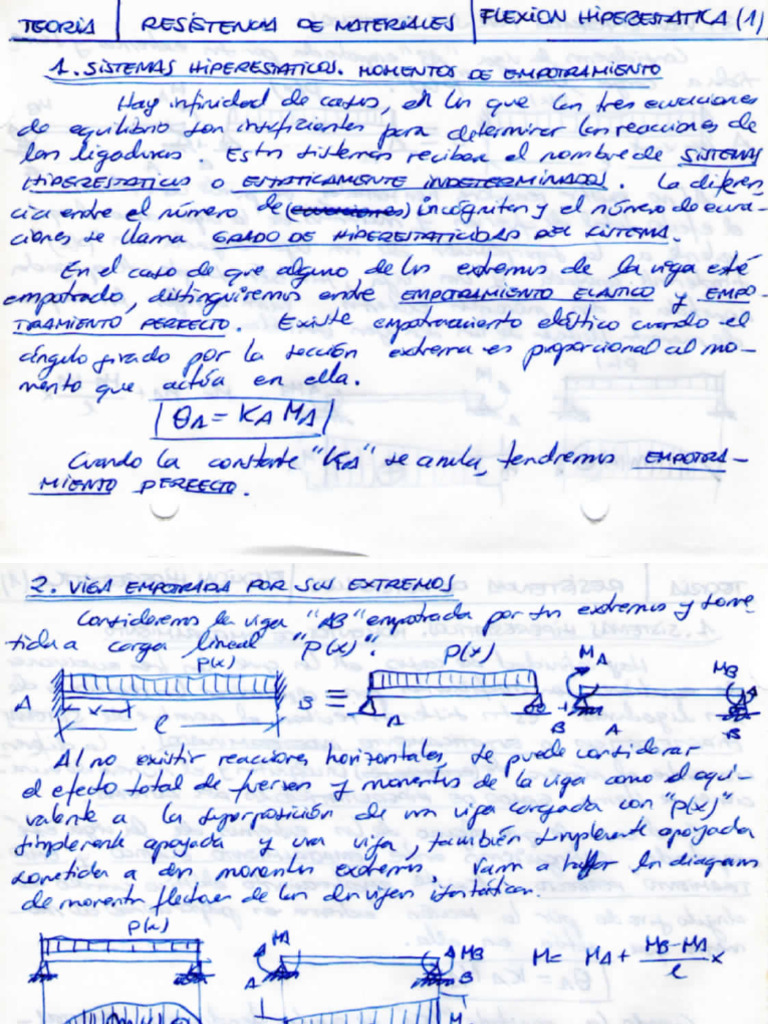 TEORÍA | RESISTENCIA DE MATERIALES | FLEXION HIPERESTATICA (1)
1. SISTEMAS HIPERESTATICOS. MOMENTOS DE EMPOTRAMIENTO
Hay infinidad de casos, en los que las tres ecuaciones
de equilibrio son insuficientes para determinar las reacciones de
las ligaduras. Estos sistemas reciben el nombre de SISTEMAS
HIPERESTATICOS O ESTATICAMENTE INDETERMINADOS. La diferen
cia entre el número de (ecuaciones) incógnitas y el número de ecua-
ciones se llama GRADO DE HIPERESTATICIDAD DEL SISTEMA.
En el caso de que alguno de los extremos de la viga esté
empotrado, distinguiremos entre EMPOTRAMIENTO ELASTICO y EMPO-
TRAMIENTO PERFECTO. Existe empotramiento elástico cuando el
ángulo girado por la sección extrema es proporcional al mo-
mento que actúa en ella.
θA = KA MA
Cuando la constante "KA" se anula, tendremos EMPOTRA-
MIENTO PERFECTO.
2. VIGA EMPOTRADA POR SUS EXTREMOS
Consideremos la viga "AB" empotrada por sus extremos y some-
tida a carga lineal "p(x)".
p(x) p(x) MA MB
A x B ≡ A B A B
l
Al no existir reacciones horizontales, se puede considerar
el efecto total de fuerzas y momentos de la viga como el equi-
valente a la superposición de una viga cargada con "p(x)"
simplemente apoyada y una viga, también simplemente apoyada
sometida a dos momentos extremos. Vamos a hallar los diagramas
de momentos flectores de las dos vigas isostáticas.
p(x) MA MB M = MA + (MB-MA)/l x
A B
M